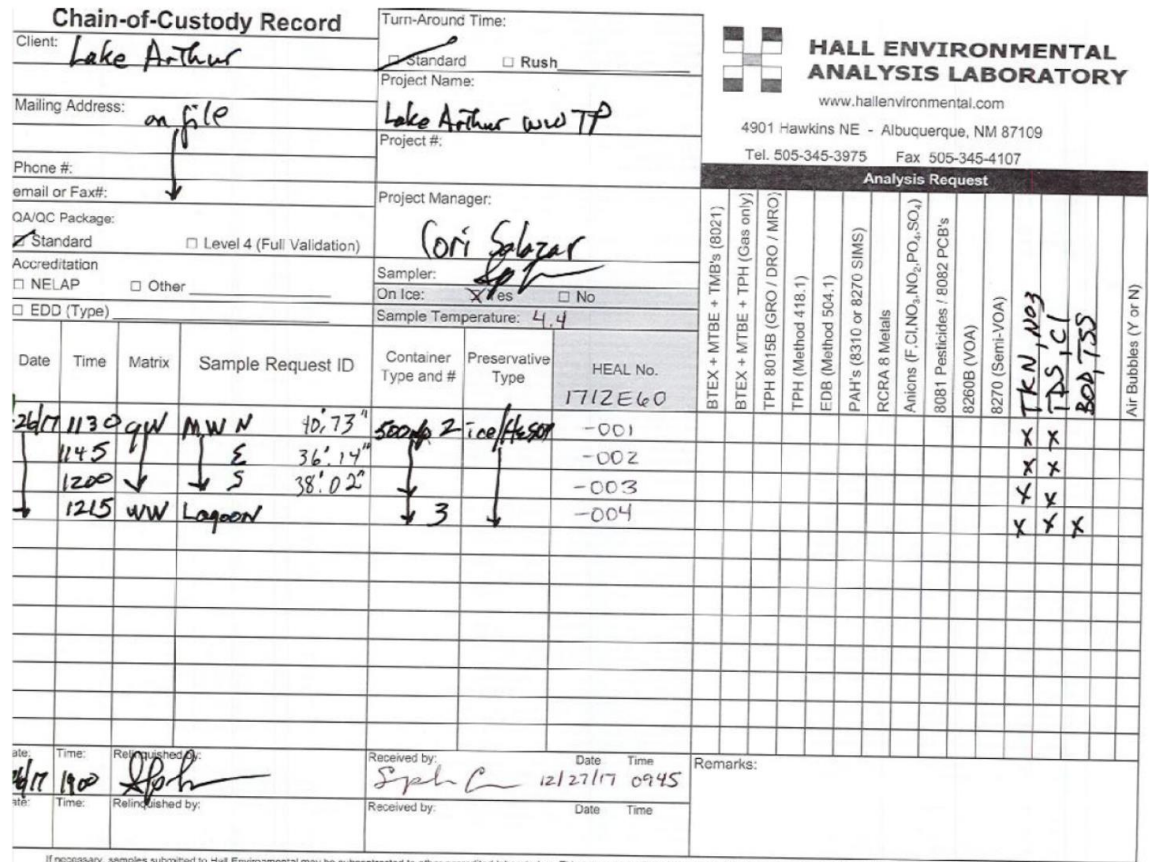 Chain-of-Custody Record
Client: Lake Arthur
Mailing Address: on file
Phone #:
email or Fax#:
QA/QC Package:
Standard □ Level 4 (Full Validation)
Accreditation
□ NELAP □ Other
□ EDD (Type)
Turn-Around Time:
□ Standard □ Rush
Project Name:
Lake Arthur WWTP
Project #:
Project Manager:
Cori Salazar
Sampler:
On Ice: X Yes □ No
Sample Temperature: 4.4
HALL ENVIRONMENTAL
ANALYSIS LABORATORY
www.hallenvironmental.com
4901 Hawkins NE - Albuquerque, NM 87109
Tel. 505-345-3975 Fax 505-345-4107
Analysis Request
BTEX + MTBE + TMB's (8021)
BTEX + MTBE + TPH (Gas only)
TPH 8015B (GRO / DRO / MRO)
TPH (Method 418.1)
EDB (Method 504.1)
PAH's (8310 or 8270 SIMS)
RCRA 8 Metals
Anions (F,Cl,NO₃,NO₂,PO₄,SO₄)
8081 Pesticides / 8082 PCB's
8260B (VOA)
8270 (Semi-VOA)
TKN, NO3
TDS, Cl
BOD, TSS
Air Bubbles (Y or N)
Date Time Matrix Sample Request ID Container Type and # Preservative Type HEAL No.
1712E60
26/17 1130 gW MW N 40'.73" 500 2 ice/ -001 X X
1145 E 36'.14" -002 X X
1200 S 38'.02" -003 X X
1215 WW Lagoon 3 -004 X X X
ate: Time: Relinquished by: Received by: Date Time Remarks:
26/17 1900 12/27/17 0945
ate: Time: Relinquished by: Received by: Date Time
If necessary, samples submitted to Hall Environmental may be subcontracted to other accredited laboratories.